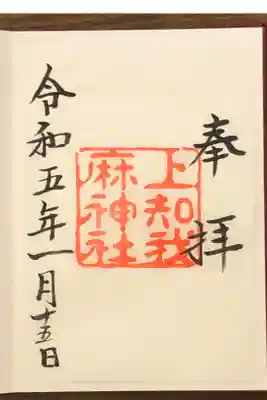 奉拝
上知我
麻神社
令和五年一月十五日